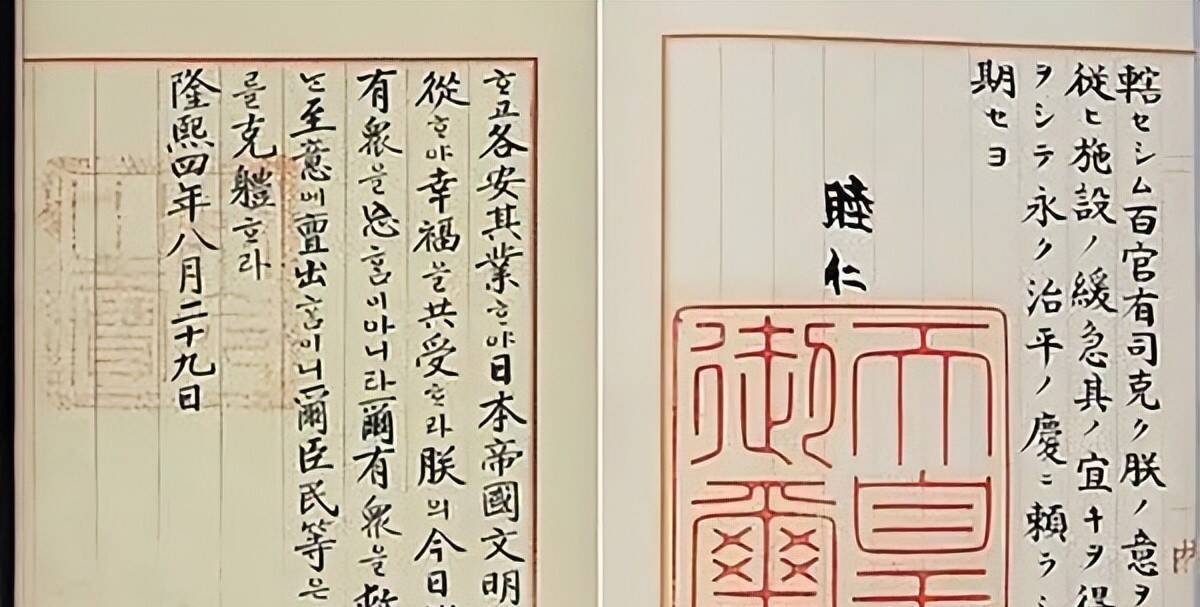 ᄒᆞ고各安其業ᄒᆞ야日本帝國文明
從ᄒᆞ야幸福을共受ᄒᆞ라朕의今日
有衆을忘홈이아니라爾有衆을救
는至意에亶出홈이니爾臣民等은
를克軆ᄒᆞ라
隆熙四年八月二十九日
轄セシム百官有司克ク朕ノ意ヲ
從ヒ施設ノ緩急其ノ宜キヲ得
ヲシテ永ク治平ノ慶ニ頼ラシ
期セヨ
睦仁
天皇
御璽